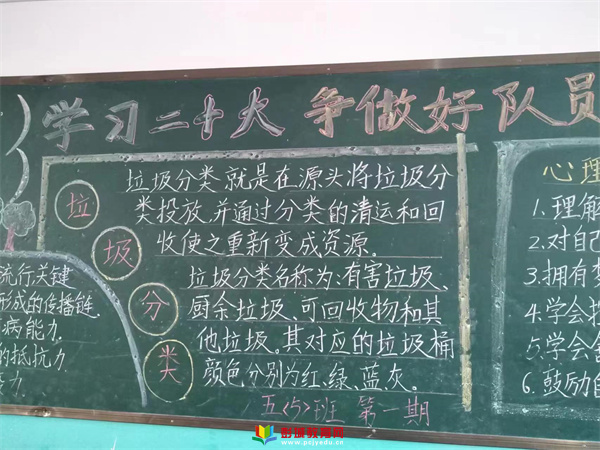 学习二十大 争做好队员
垃
圾
分
类
垃圾分类,就是在源头将垃圾分
类投放,并通过分类的清运和回
收使之重新变成资源。
垃圾分类名称为:有害垃圾、
厨余垃圾、可回收物和其
他垃圾。其对应的垃圾桶
颜色分别为红、绿、蓝灰。
五<5>班 第一期
流行关键
形成的传播链.
病能力.
的抵抗力
力.
心理
1.理解
2.对自己
3.拥有梦
4.学会
5.学会
6.鼓励自
www.pcjyedu.cn